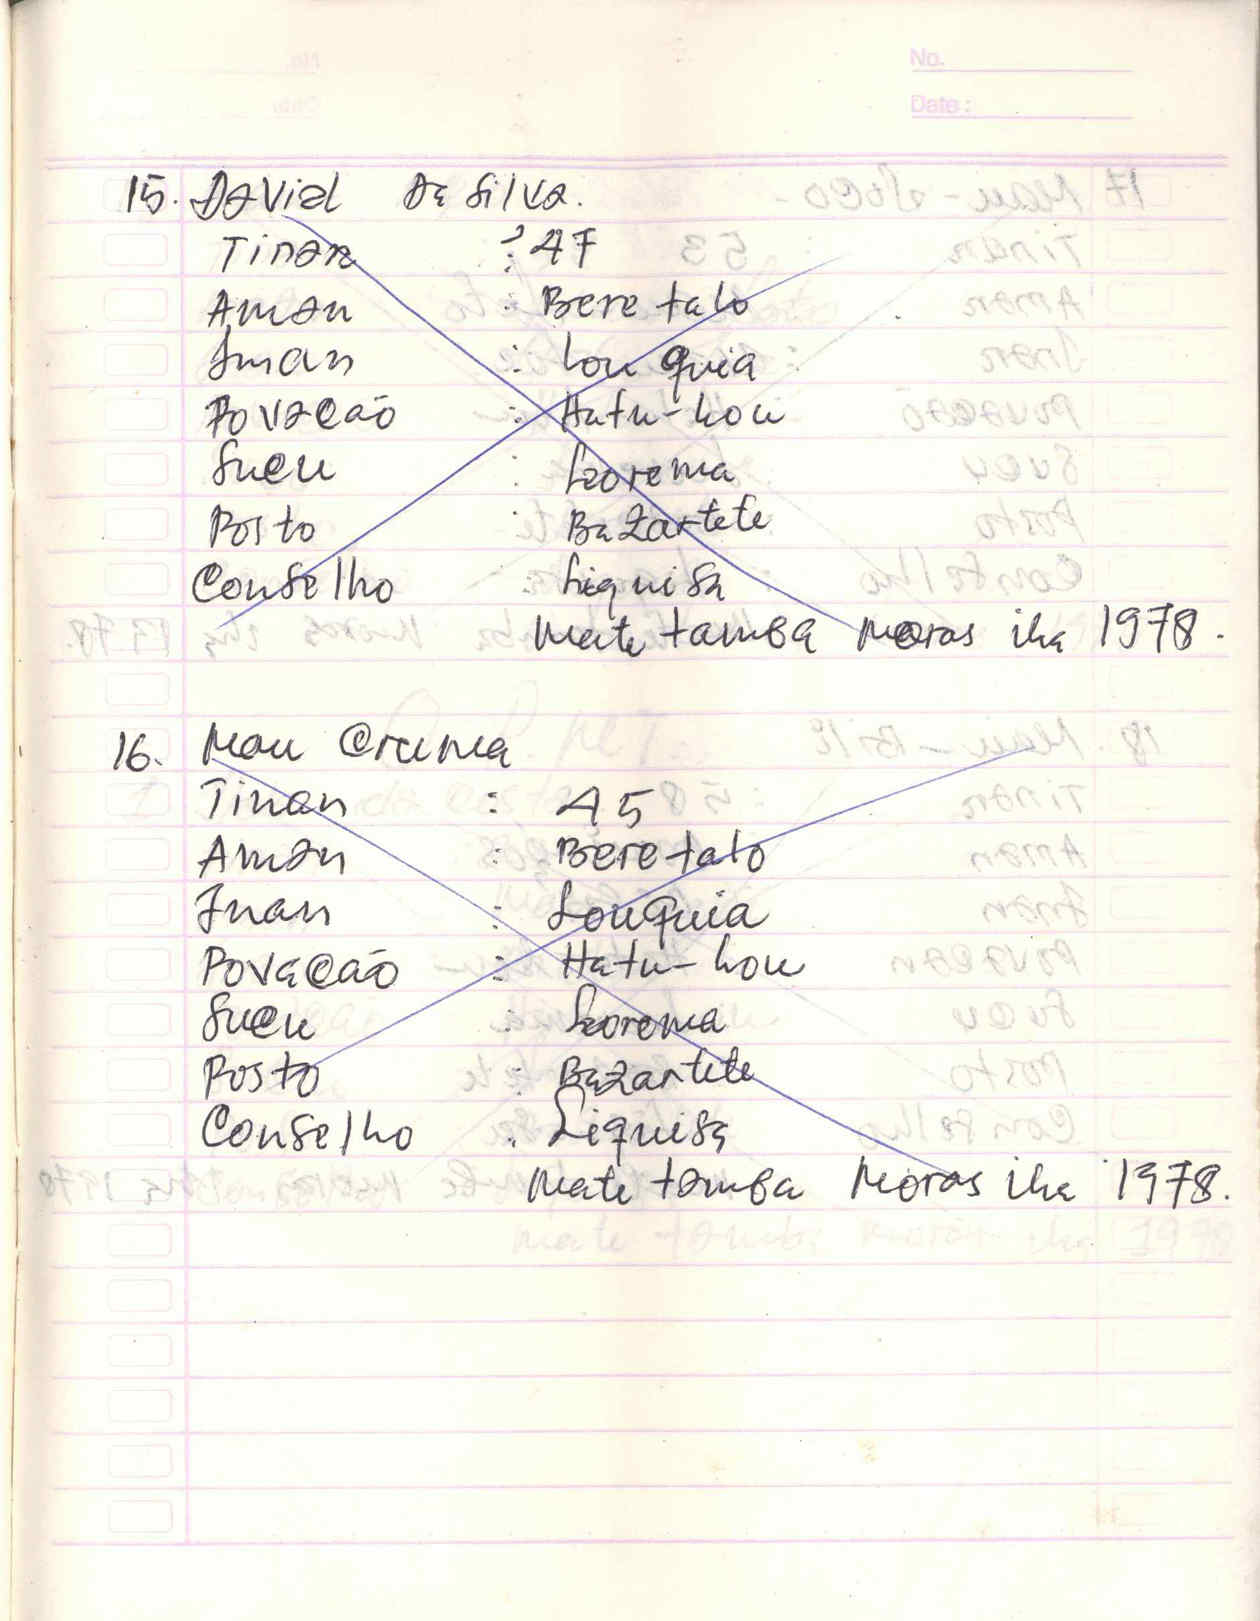 No.
Date :
15. David da Silva.
Tinan : 47
Aman : Bere talo
Inan : Lou quia
Povacão : Hatu-hou
Sucu : Leorema
Posto : Bazartete
Conselho : Liquisa
Mate tamba moras iha 1978.
16. Mau Cruma
Tinan : 45
Aman : Bere talo
Inan : Louquia
Povacão : Hatu-hou
Sucu : Leorema
Posto : Bazartete
Conselho : Liquisa
Mate tamba Moras iha 1978.